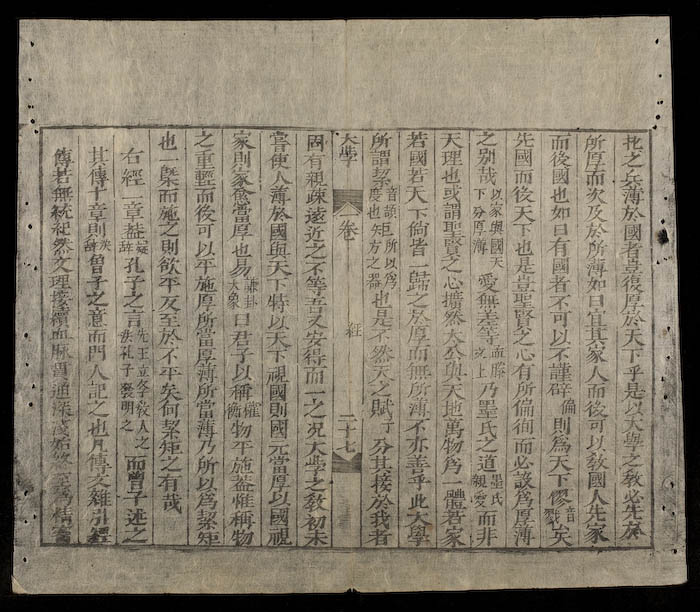 於之矣薄於國者豈復厚於天下乎是以大學之教必先於
所厚而次及於所薄如曰宜其家人而後可以敎國人先家
而後國也如曰有國者不可以不謹辟偏則爲天下僇音戮矣
先國而後天下也是豈聖賢之心有所偏徇而必設爲厚薄
之別哉以家與國天下分厚薄愛無差等乃墨氏之道墨氏親愛而非
天理也或謂聖賢之心擴然大公與天地萬物爲一體若家
若國若天下倘皆一歸之於厚而無所薄不亦善乎此大學
所謂絜音頡度也矩所以爲方之器也是不然天之賦予分其接於我者
大學 一卷 經 二十七
固有親疎遠近之不等吾又安得而一之况大學之敎初未
嘗使人薄於國與天下特以天下視國則國元當厚以國視
家則家愈當厚也易謙卦大象曰君子以稱物平施蓋惟稱物
之重輕而後可以平施厚所當厚薄所當薄乃所以爲絜矩
也一槩而施之則欲平反至於不平矣何絜矩之有哉
右經一章蓋疑辭孔子之言先王立學敎人之法孔子發明之而曾子述之
其傳十章則决辭曾子之意而門人記之也凡傳文雜引經
傳若無統紀然文理接續血脉貫通深淺始終至爲精密